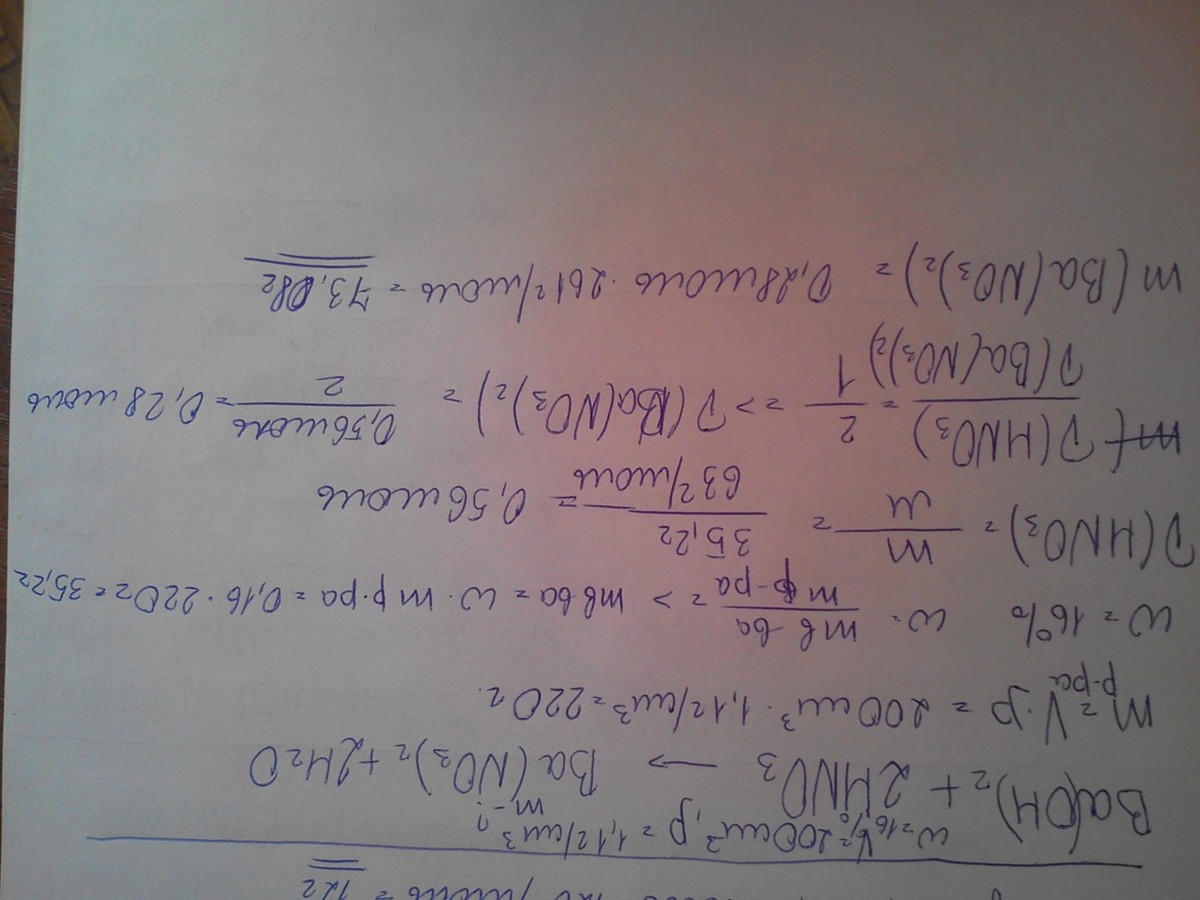 = 12г
w=16%, V=200см³, ρ=1,1г/см³ m-?
Ba(OH)₂ + 2HNO₃ → Ba(NO₃)₂ + 2H₂O
m р-ра = V·ρ = 200см³ · 1,1г/см³ = 220г.
w = 16% w = m в-ва / m р-ра => m в-ва = w · m р-ра = 0,16 · 220г = 35,2г
ν(HNO₃) = m / M = 35,2г / 63г/моль = 0,56моль
ν(HNO₃) / ν(Ba(NO₃)₂) = 2 / 1 => ν(Ba(NO₃)₂) = 0,56моль / 2 = 0,28моль
m(Ba(NO₃)₂) = 0,28моль · 261г/моль = 73,08г